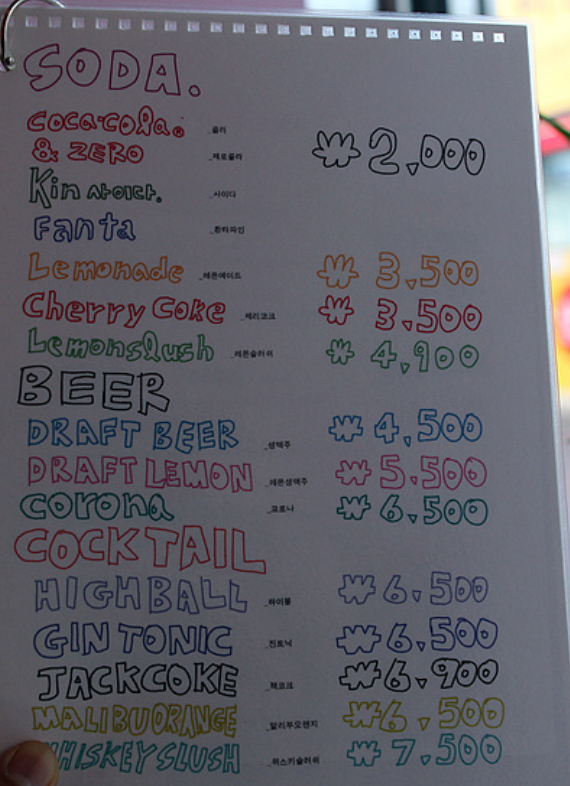 SODA.
coca-cola. _콜라
& ZERO _제로콜라 ₩ 2,000
Kin 사이다. _사이다
Fanta _환타파인
Lemonade _레몬에이드 ₩ 3,500
Cherry Coke _체리코크 ₩ 3,500
Lemonslush _레몬슬러쉬 ₩ 4,900
BEER
DRAFT BEER _생맥주 ₩ 4,500
DRAFT LEMON _레몬생맥주 ₩ 5,500
corona _코로나 ₩ 6,500
COCKTAIL
HIGHBALL _하이볼 ₩ 6,500
GIN TONIC _진토닉 ₩ 6,500
JACKCOKE _잭코크 ₩ 6,900
MALIBU ORANGE _말리부오렌지 ₩ 6,500
WHISKEY SLUSH _위스키슬러쉬 ₩ 7,500